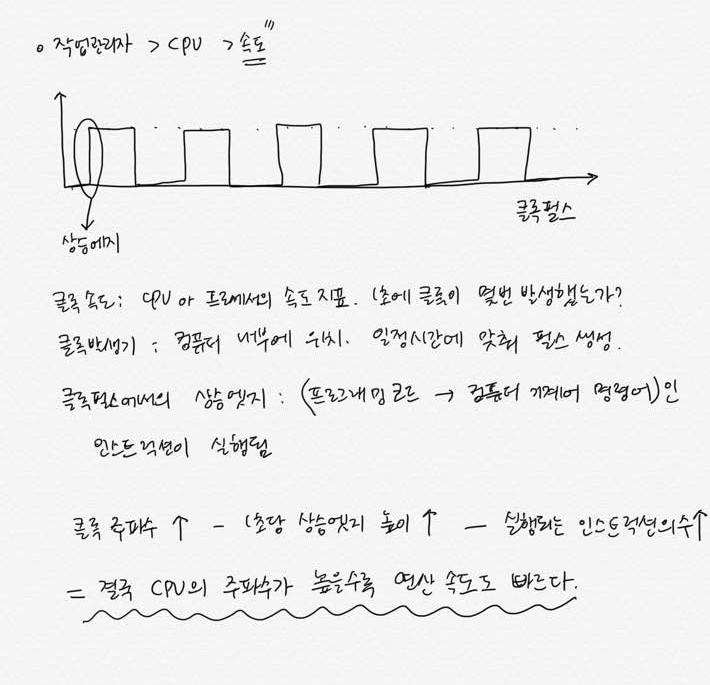 o 작업관리자 > CPU > 속도"
클록펄스
상승에지
클록 속도 : CPU or 프로세서의 속도 지표. 1초에 클록이 몇번 발생했는가?
클록발생기 : 컴퓨터 내부에 위치. 일정시간에 맞춰 펄스 생성.
클록펄스에서의 상승엣지 : (프로그래밍 코드 → 컴퓨터 기계어 명령어)인
인스트럭션이 실행됨
클록 주파수 ↑ - 1초당 상승엣지 높이 ↑ - 실행되는 인스트럭션의수↑
= 결국 CPU의 주파수가 높을수록 연산 속도도 빠르다.